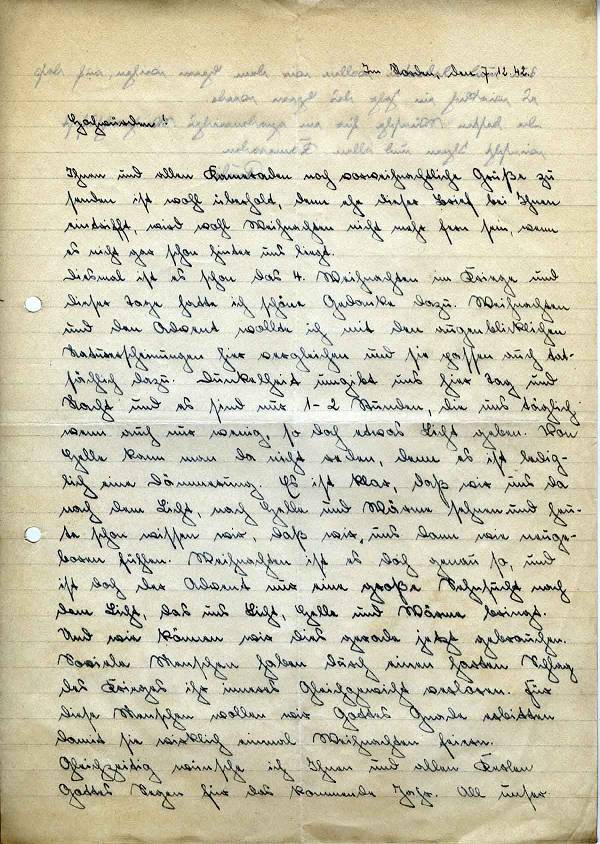 Im Norden, den 7.12.42.
Hochwürden!
Ihnen und allen Kameraden noch vorweihnachtliche Grüße zu
senden ist wohl überholt, denn ehe dieser Brief bei Ihnen
eintrifft, wird wohl Weihnachten nicht mehr fern sein, wenn
es nicht gar schon hinter uns liegt.
Diesmal ist es schon das 4. Weihnachten im Kriege und
dieser Tage hatte ich schöne Gedanke dazu. Weihnachten
und den Advent wollte ich mit den augenblicklichen
Naturerscheinungen hier vergleichen und sie passen auch tat-
sächlich dazu. Dunkelheit umgibt uns hier Tag und
Nacht und es sind nur 1-2 Stunden, die uns täglich
wenn auch nur wenig, so doch etwas Licht geben. Von
Helle kann man da nicht reden, denn es ist ledig-
lich eine Dämmerung. Es ist klar, daß wir uns da
nach dem Licht, nach Helle und Wärme sehnen und heu-
te schon wissen wir, daß wir uns dann wie neuge-
boren fühlen. Weihnachten ist es doch genau so, und
ist doch der Advent nur eine große Sehnsucht nach
dem Licht, das uns Licht, Helle und Wärme bringt.
Und wie können wir dies gerade jetzt gebrauchen.
Soviele Menschen haben durch einen harten Schlag
des Krieges ihr inneres Gleichgewicht verloren. Für
diese Menschen wollen wir Gottes Gnade erbitten
damit sie wirklich einmal Weihnachten feiern.
Gleichzeitig wünsche ich Ihnen und allen
Gottes Segen für das kommende Jahr. All unser